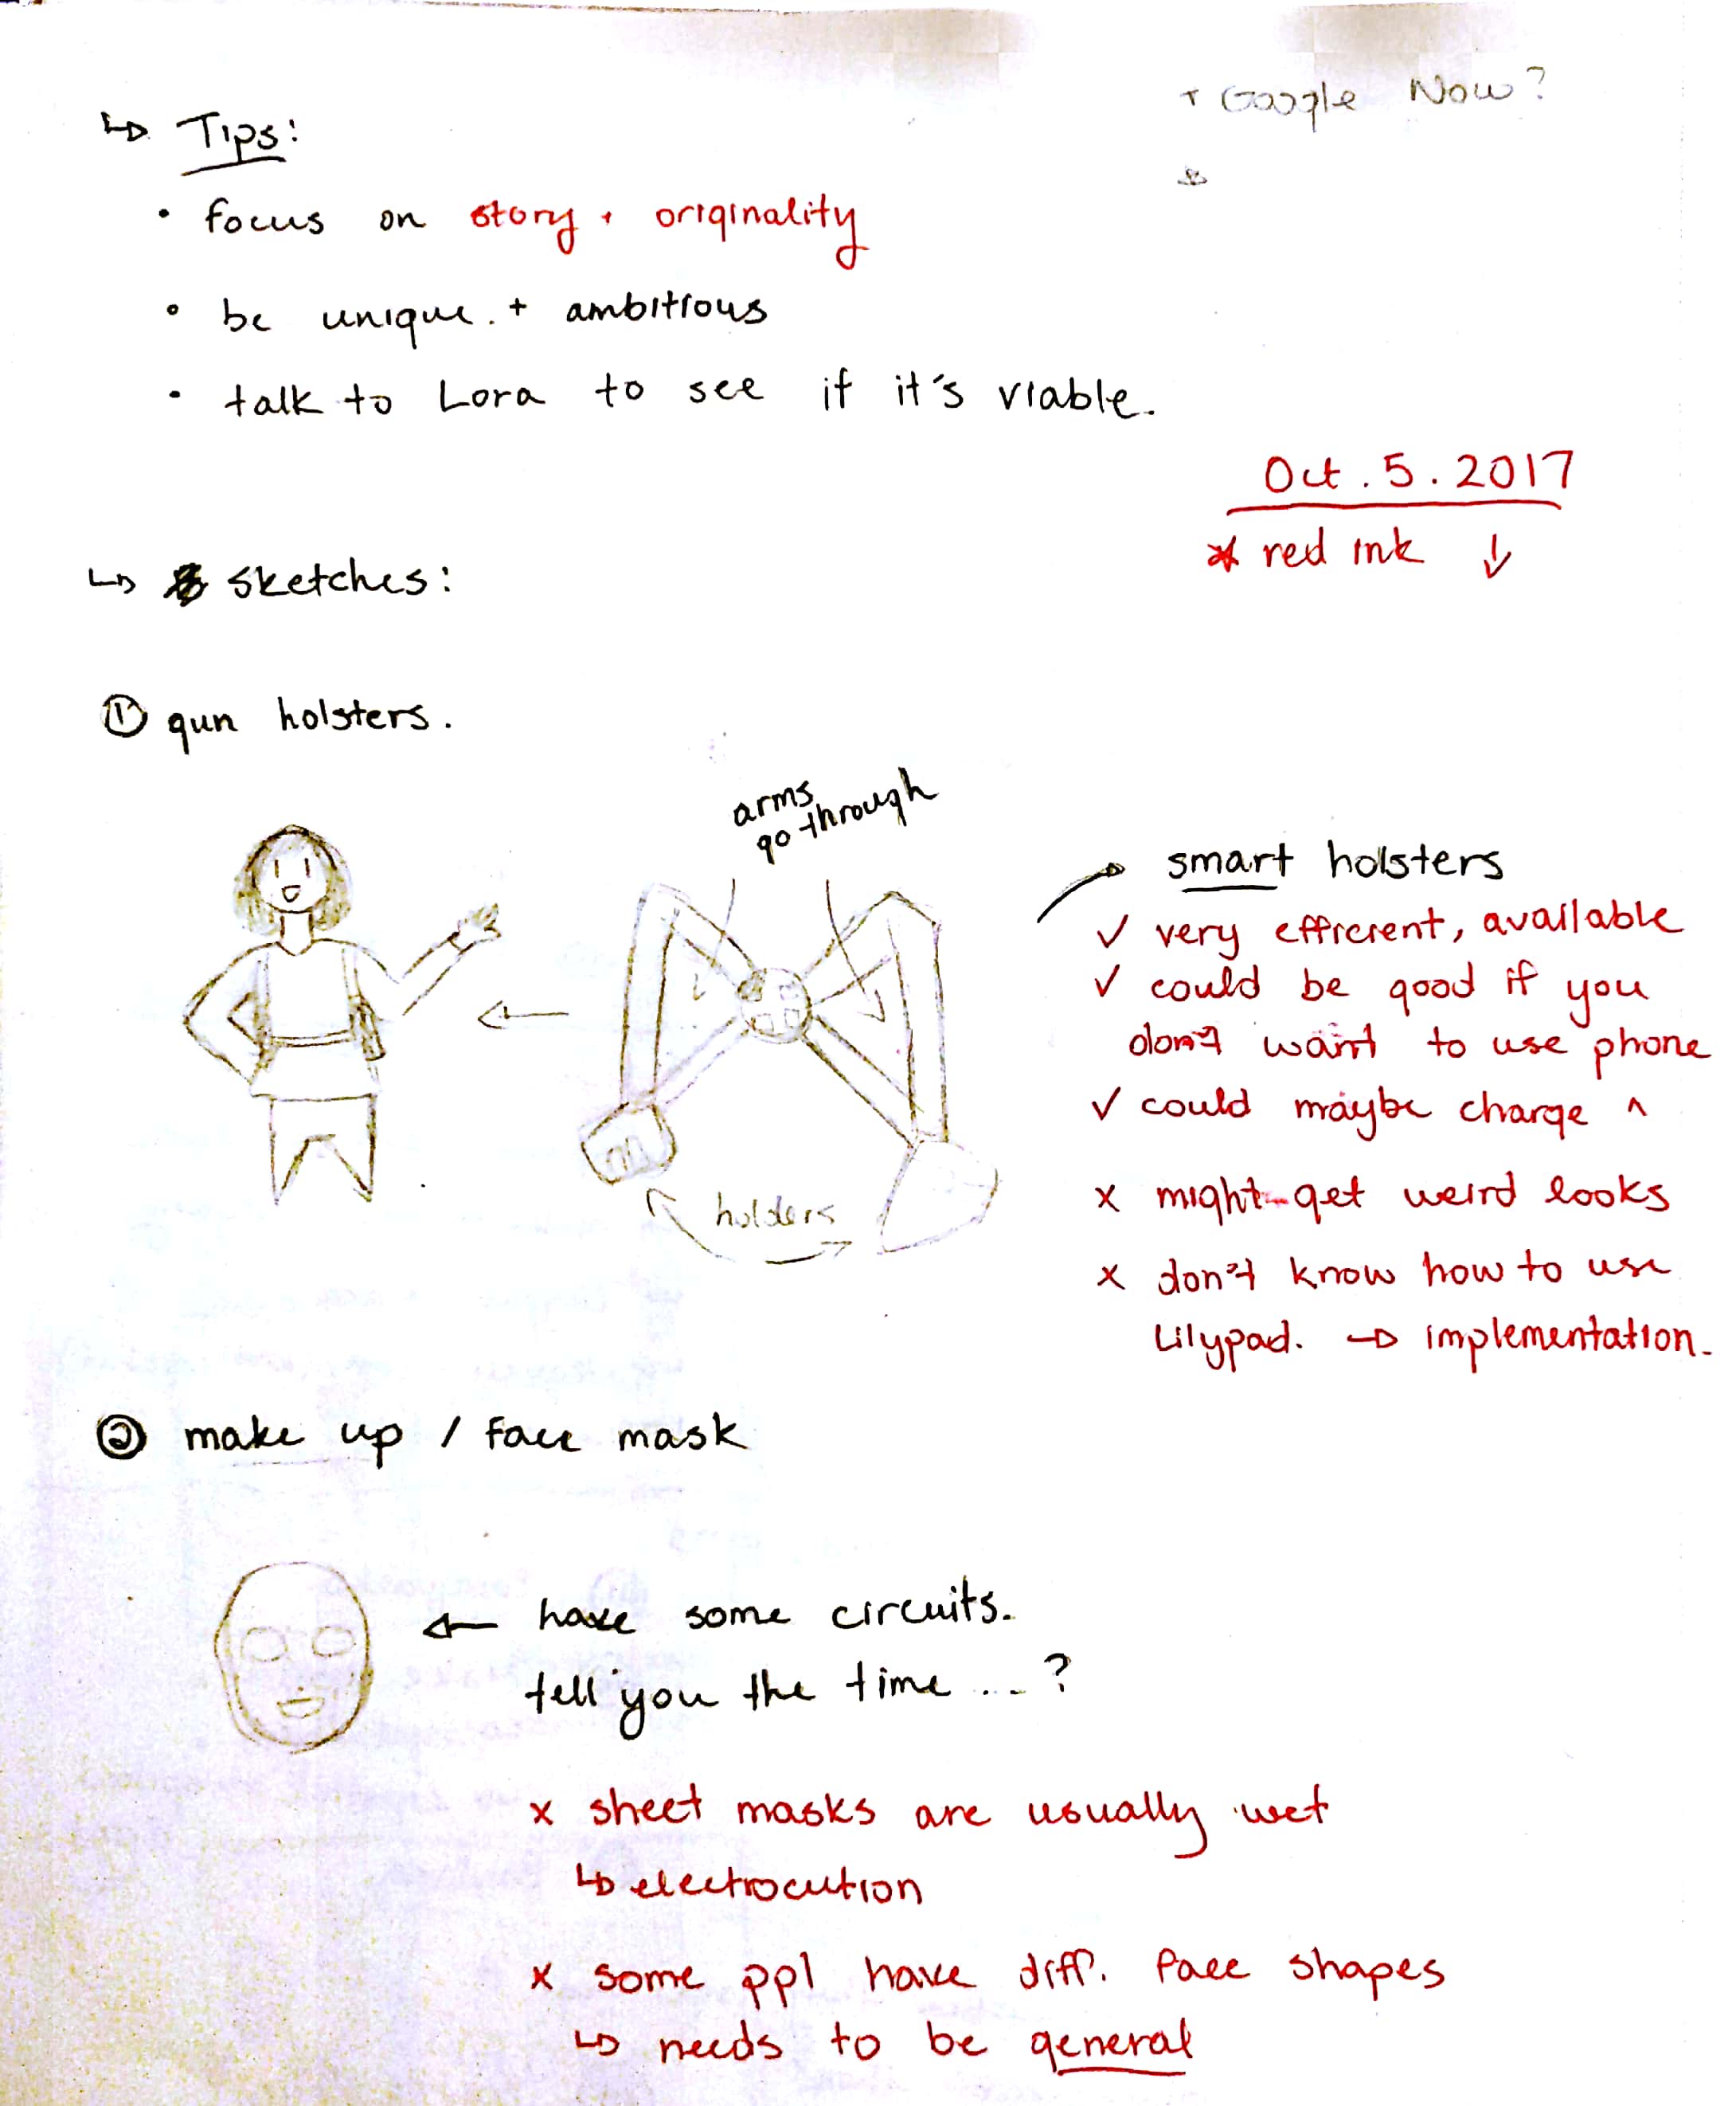 + Google Now?
↳ Tips:
• focus on story + originality
• be unique. + ambitious
• talk to Lora to see if it's viable.
Oct. 5. 2017
* red ink ↓
↳ sketches:
① gun holsters.
arms
go through
smart holsters
✓ very efficient, available
✓ could be good if you
don't want to use phone
✓ could maybe charge ^
x might get weird looks
x don't know how to use
Lilypad. → implementation.
holders
② make up / face mask
← have some circuits.
tell you the time ...?
x sheet masks are usually wet
↳ electrocution
x some ppl have diff. face shapes
↳ needs to be general